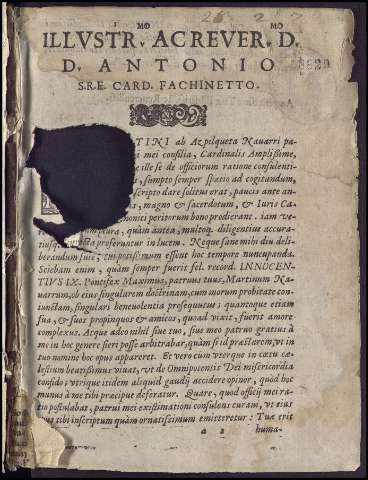 IMO MO
ILLVSTR. AC REVER. D.
D. ANTONIO
S.R.E. CARD. FACHINETTO.
TINI ab Azpilqueta Nauarri pa-
i mei consilia, Cardinalis Amplissime,
ille se de officiorum ratione consulenti-
, sumpto semper spatio ad cogitandum,
scripto dare solitus erat, paucis ante an-
, magno & sacerdotum, & Iuris Ca-
nonici peritorum bono prodierant. iam ve-
plura, quàm antea, multoq. diligentius accura-
tiusq. proferuntur in lucem. Neque sane mihi diu deli-
berandum fuit, cui potissimum essent hoc tempore nuncupanda.
Sciebam enim, quàm semper fuerit fel. record. INNOCEN-
TIVS IX. Pontifex Maximus, patruus tuus, Martinum Na-
uarrum, ob eius singularem doctrinam, cum morum probitate con-
iunctam, singulari beneuolentia prosequutus; quantoque etiam
sua, & suos propinquos & amicos, quoad vixit, fuerit amore
complexus. Atque adeo nihil siue tuo, siue meo patruo gratius à
me in hoc genere fieri posse arbitrabar, quàm si id præstarem, vt in
tuo nomine hoc opus appareret. Et vero cùm vterque in cœtu cæ-
lestium beatissimus viuat, vt de Omnipotentis Dei misericordia
confido; vtrique itidem aliquid gaudij accidere opinor, quòd hoc
munus à me tibi præcipue deferatur. Quare, quod officij mei ra-
tio postulabat, patrui mei existimationi consulens curaui, vt eius
opus tibi inscriptum quàm ornatissimum emitteretur: Tuæ erit
a 2 huma-